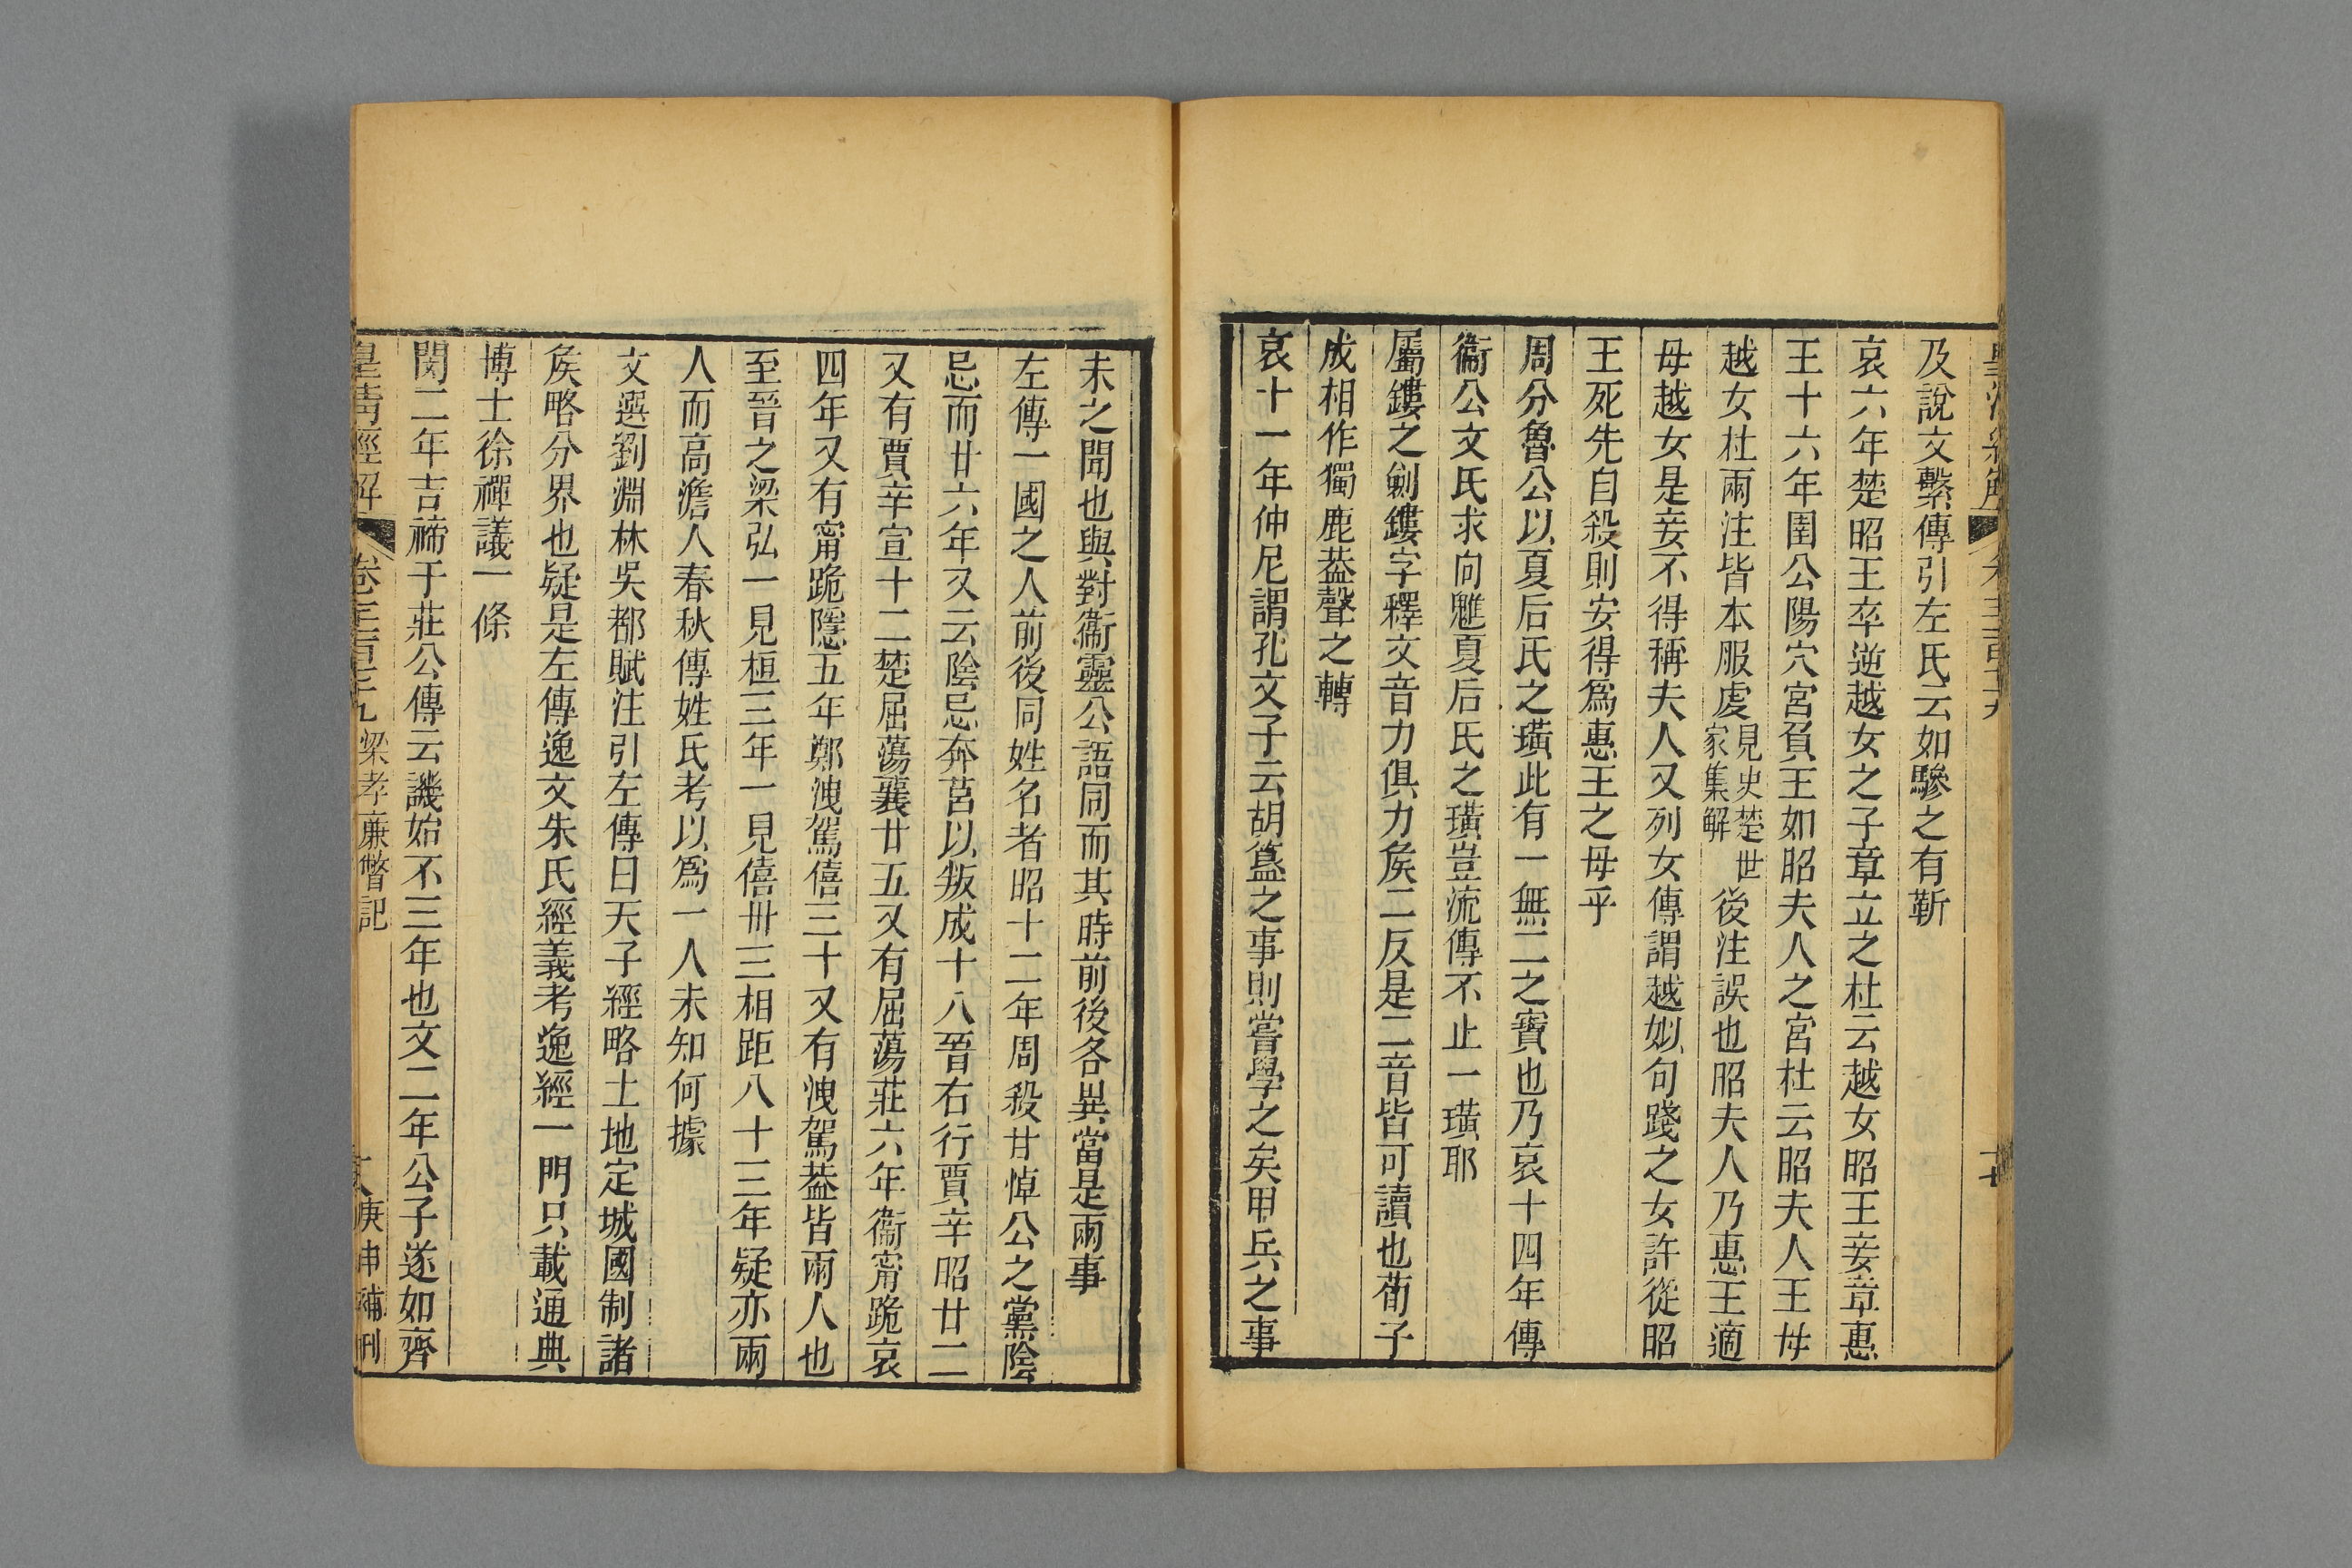 及說文繫傳引左氏云如驂之有靳
哀六年楚昭王卒逆越女之子章立之杜云越女昭王妾章惠
王十六年圉公陽穴宮負王如昭夫人之宮杜云昭夫人王母
越女杜兩注皆本服虔見史楚世家集解後注誤也昭夫人乃惠王適
母越女是妾不得稱夫人又列女傳謂越姒句踐之女許從昭
王死先自殺則安得爲惠王之母乎
周分魯公以夏后氏之璜此有一無二之寶也乃哀十四年傳
衞公文氏求向魋夏后氏之璜豈流傳不止一璜耶
屬鏤之劍鏤字釋文音力俱力矦二反是二音皆可讀也荀子
成相作獨鹿葢聲之轉
哀十一年仲尼謂孔文子云胡簋之事則嘗學之矣甲兵之事
未之聞也與對衞靈公語同而其時前後各異當是兩事
左傳一國之人前後同姓名者昭十二年周殺甘悼公之黨陰
忌而廿六年又云陰忌奔莒以叛成十八晉右行賈辛昭廿二
又有賈辛宣十二楚屈蕩襄廿五又有屈蕩莊六年衞甯跪哀
四年又有甯跪隱五年鄭洩駕僖三十又有洩駕葢皆兩人也
至晉之梁弘一見桓三年一見僖卅三相距八十三年疑亦兩
人而高澹人春秋傳姓氏考以爲一人未知何據
文選劉淵林吳都賦注引左傳曰天子經略土地定城國制諸
矦略分界也疑是左傳逸文朱氏經義考逸經一門只載通典
博士徐禪議一條
閔二年吉禘于莊公傳云譏始不三年也文二年公子遂如齊
皇清經解 卷 梁孝廉瞥記 庚申補刊